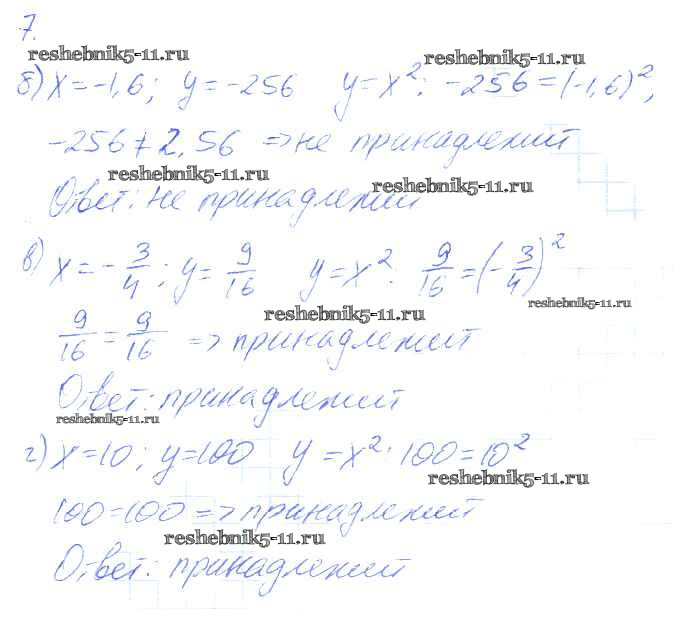 7.
reshebnik5-11.ru reshebnik5-11.ru
б) x = -1,6; y = -256 y = x²: -256 = (-1,6)²,
-256 ≠ 2,56 => не принадлежит
reshebnik5-11.ru reshebnik5-11.ru
Ответ: не принадлежит
в) x = -3/4; y = 9/16 y = x²: 9/16 = (-3/4)²
reshebnik5-11.ru reshebnik5-11.ru
9/16 = 9/16 => принадлежит
Ответ: принадлежит
reshebnik5-11.ru
г) x = 10; y = 100 y = x²: 100 = 10²
reshebnik5-11.ru
100 = 100 => принадлежит
reshebnik5-11.ru
Ответ: принадлежит